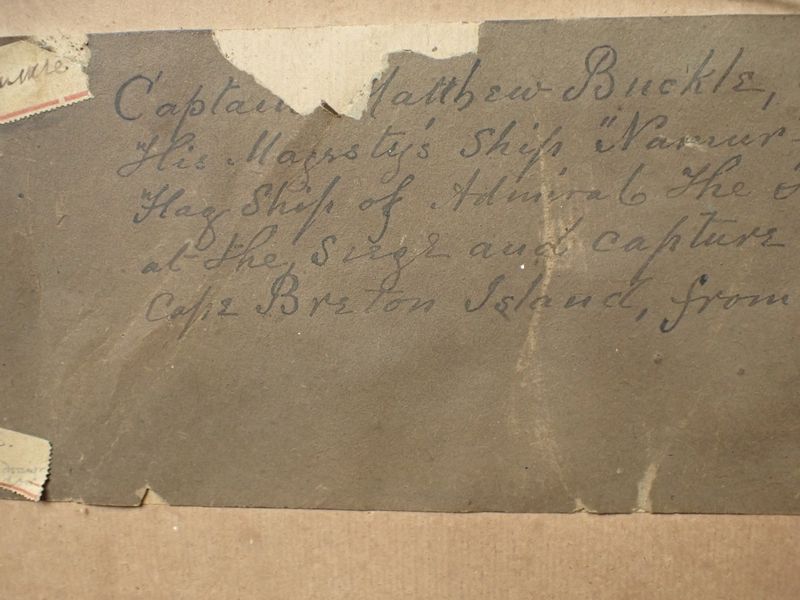 Captain Matthew Buckle,
His Majesty's Ship "Namur-
Flag Ship of Admiral The
at the, Siege and capture
Cape Breton Island, from